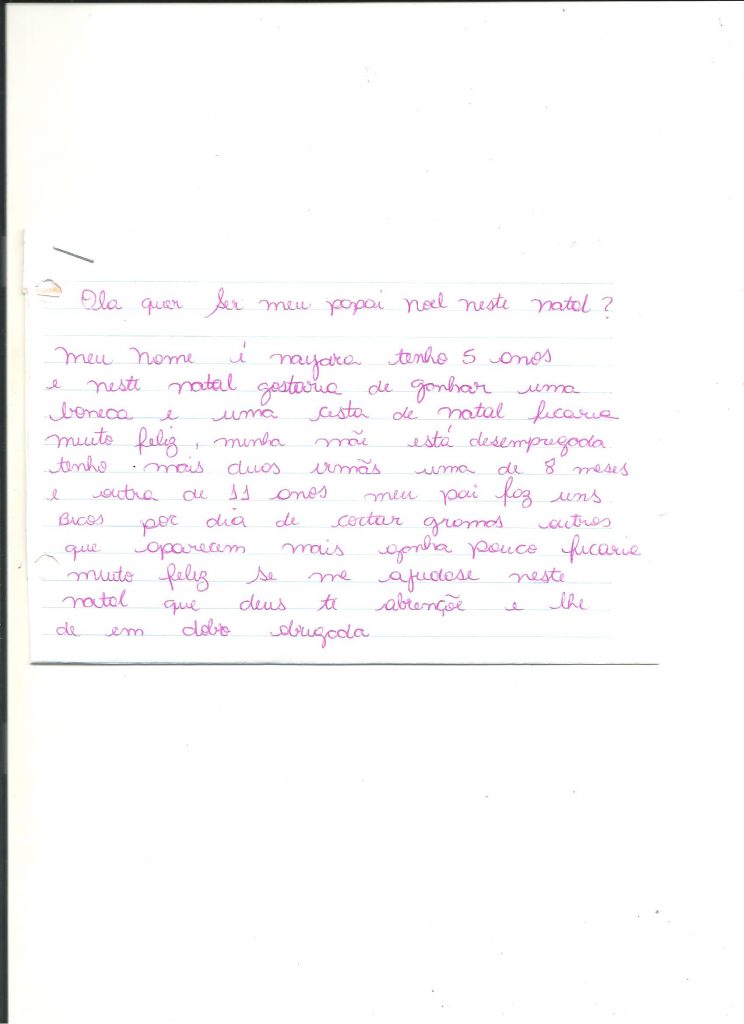 Ola quer ser meu papai noel neste natal?
meu nome é nayara tenho 5 anos
e neste natal gostaria de ganhar uma
boneca e uma cesta de natal ficaria
muito feliz, minha mãe está desempregada
tenho mais duas irmãs uma de 8 meses
e outra de 11 anos meu pai faz uns
Bicos por dia de cortar gramas outros
que aparecem mais ganha pouco ficaria
muito feliz se me ajudase neste
natal que deus te abrençõe e lhe
de em dobro obrugada